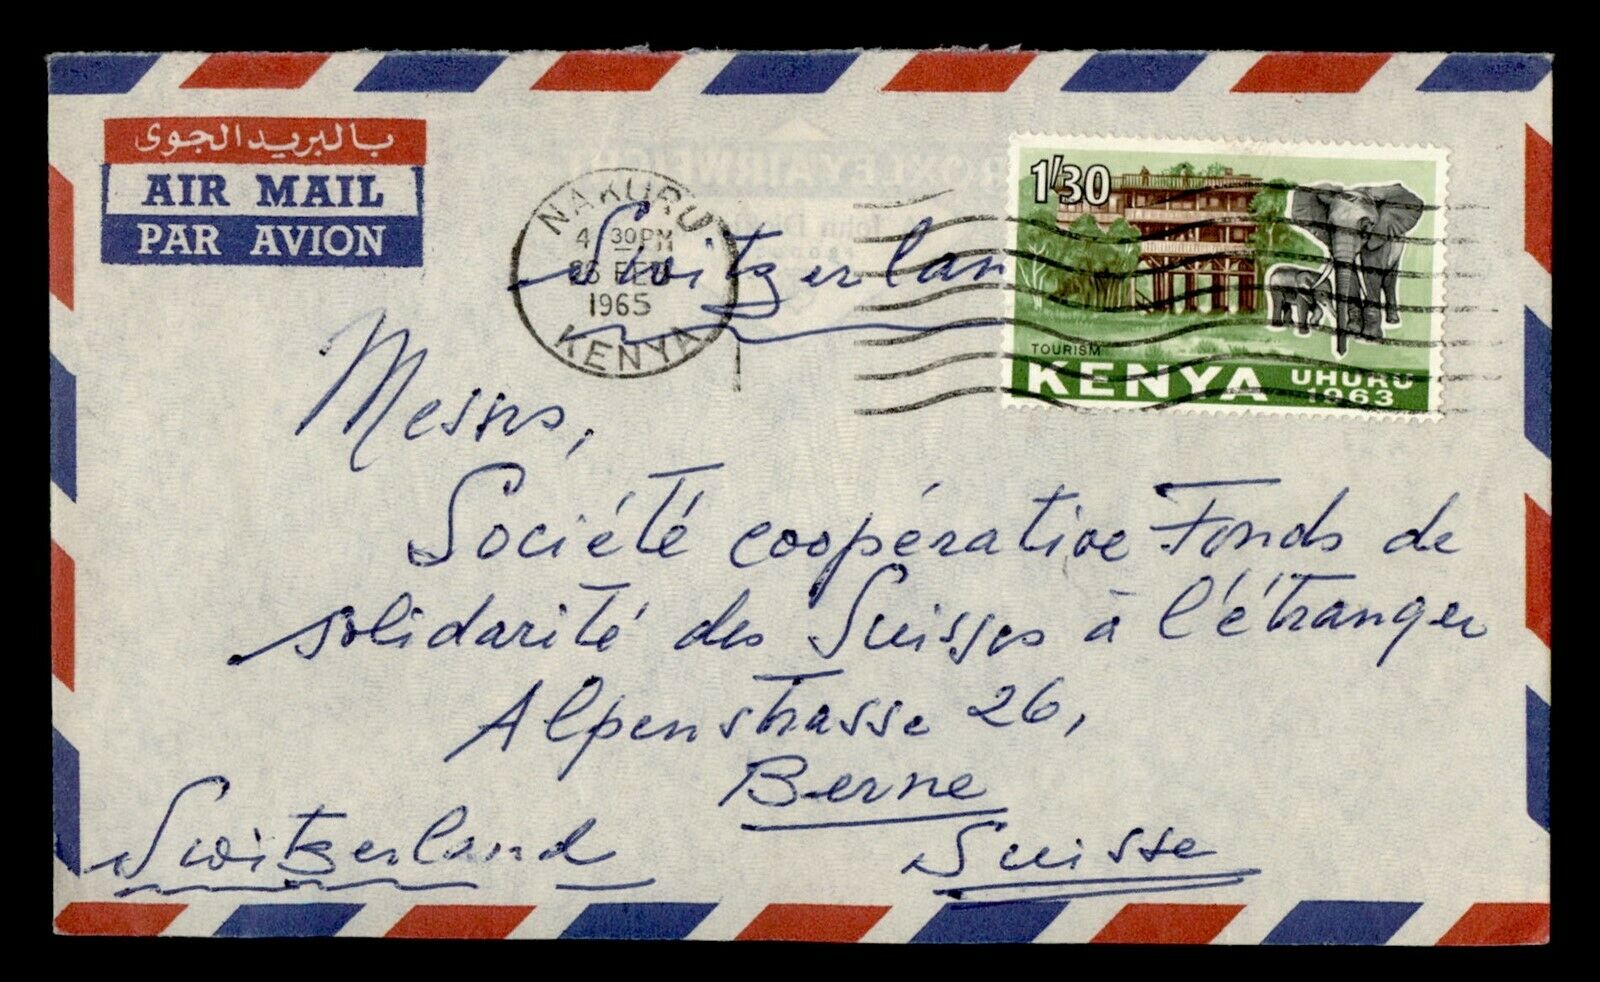 بالبريد الجوى
AIR MAIL
PAR AVION
NAKURU
4 30 PM
FEB
1965
KENYA
1/30
TOURISM
KENYA
UHURU
1963
Switzerlan
Messrs,
Société coopérative Fonds de
solidarité des Suisses à l'étranger
Alpenstrasse 26,
Berne
Switzerland
Suisse